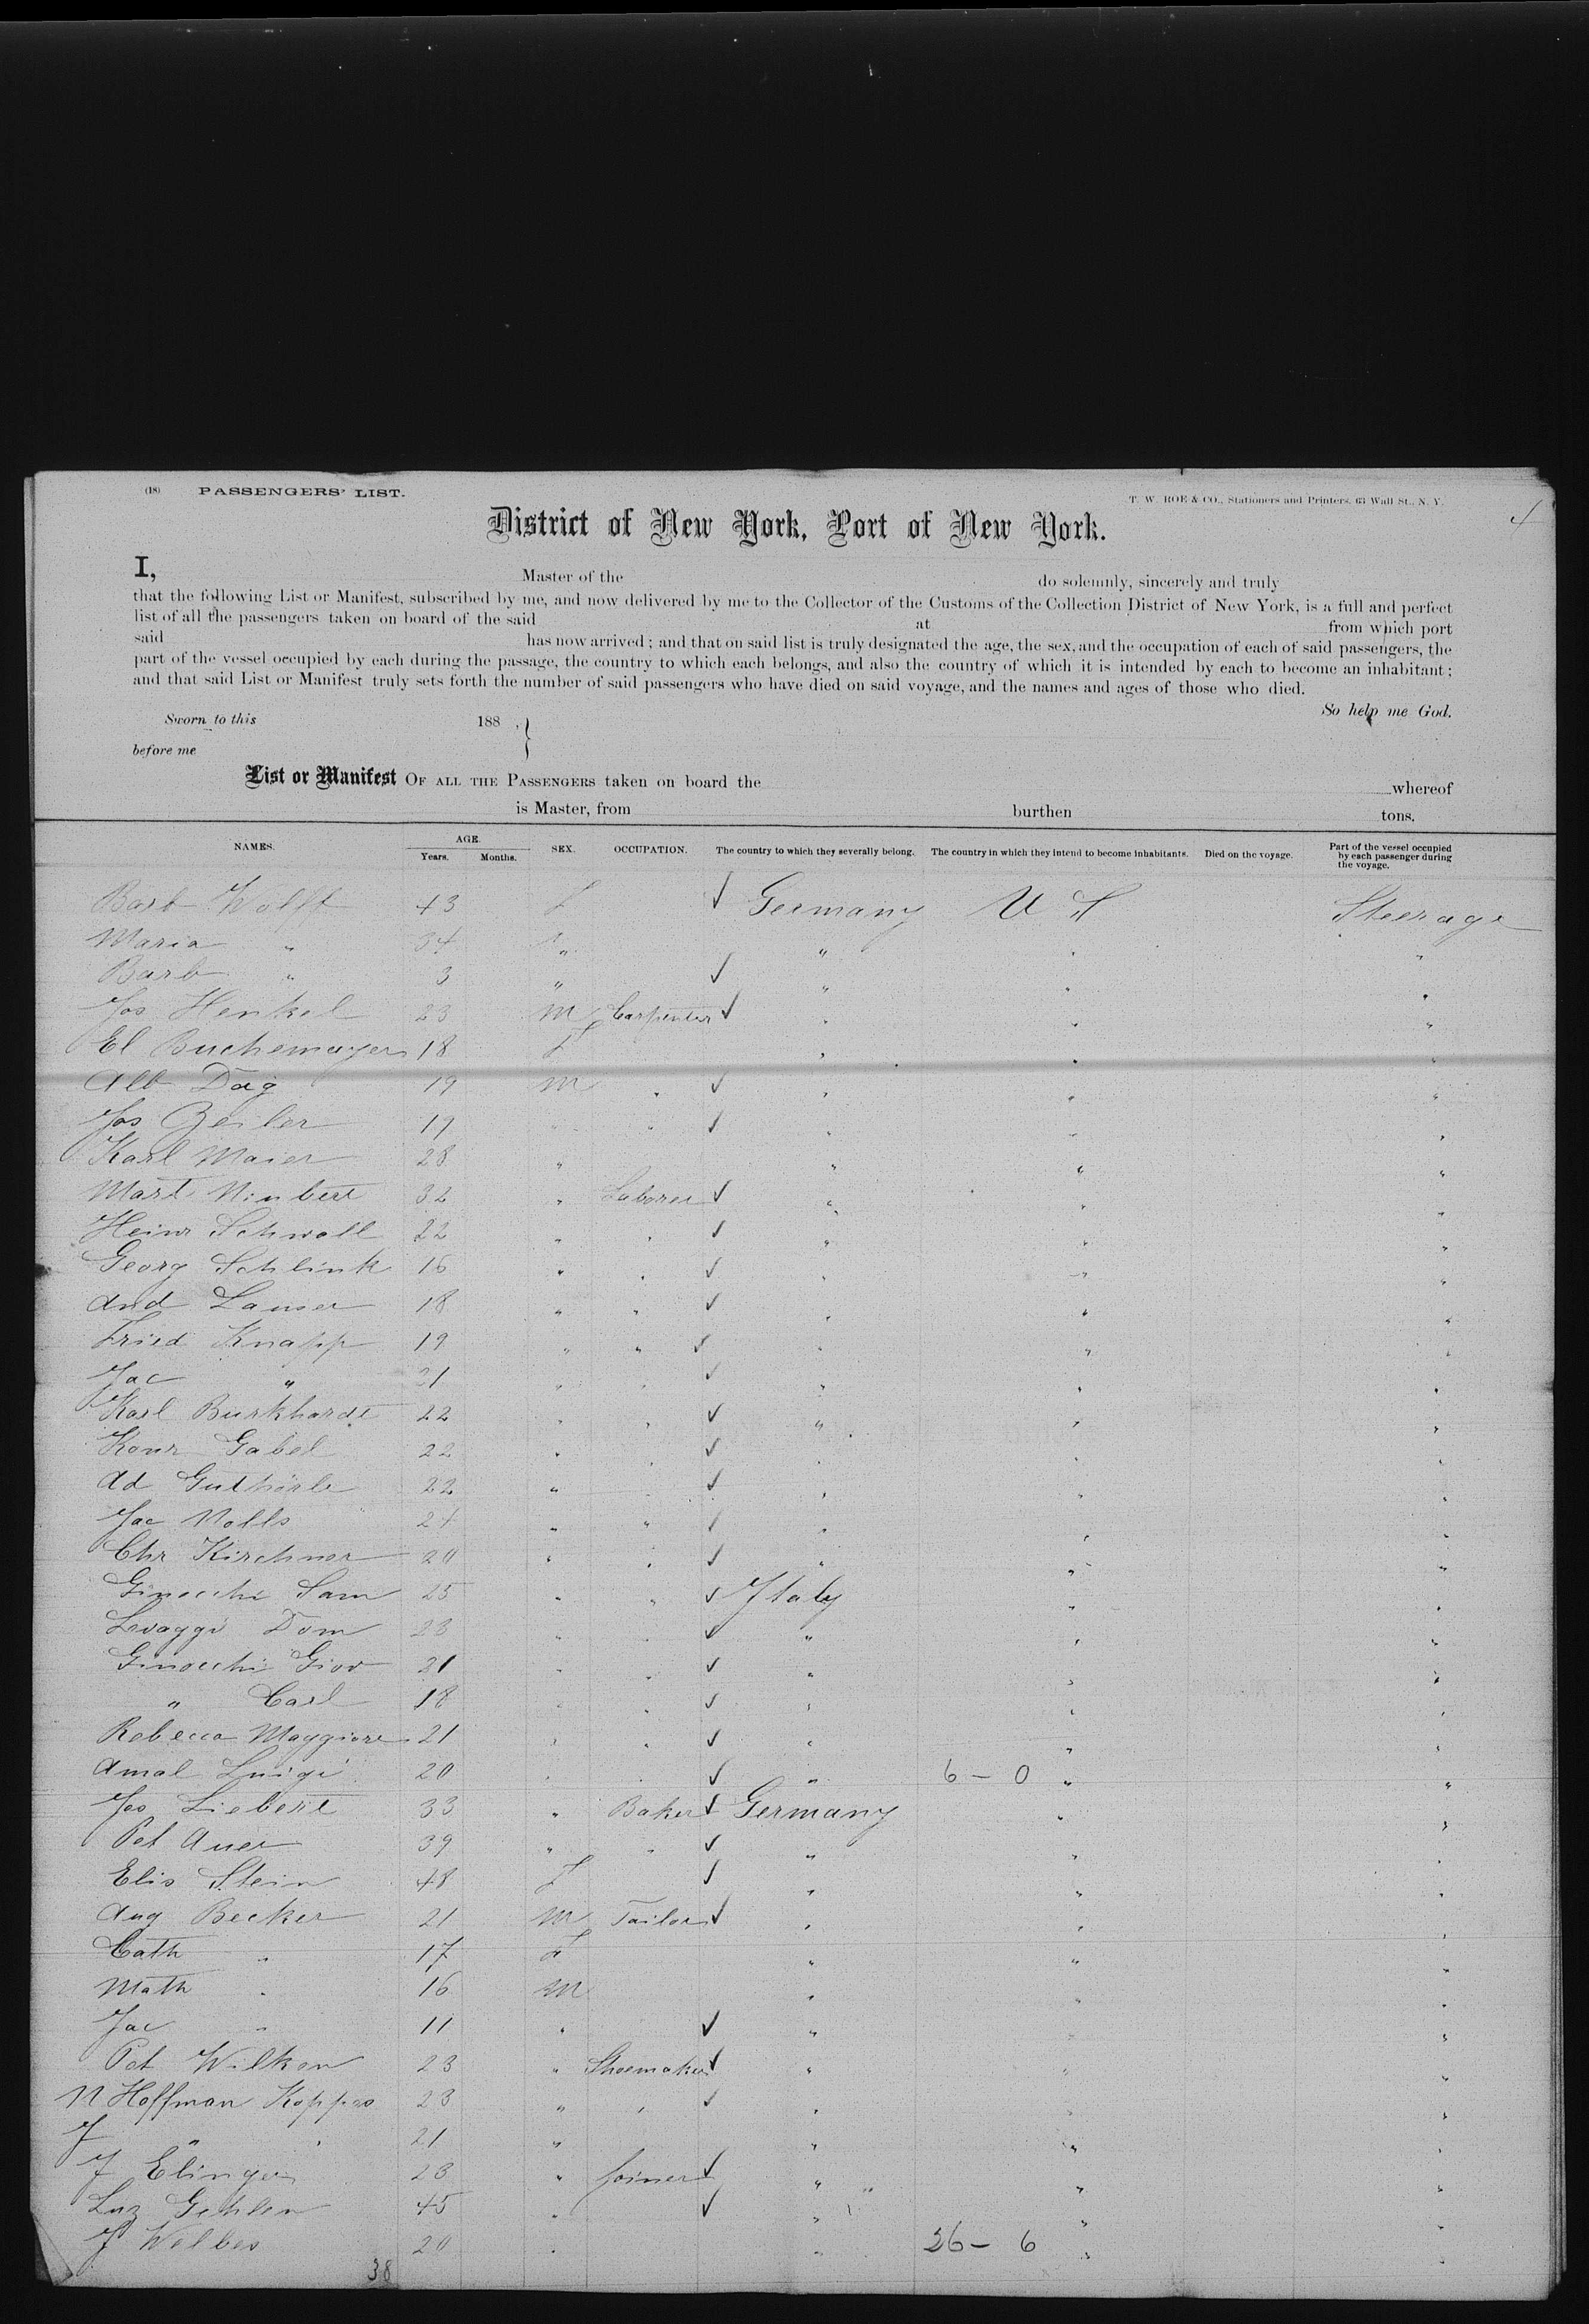 (18) PASSENGERS' LIST. T. W. ROE & CO., Stationers and Printers, 63 Wall St., N. Y.
4
District of New York, Port of New York.
I, Master of the do solemnly, sincerely and truly
that the following List or Manifest, subscribed by me, and now delivered by me to the Collector of the Customs of the Collection District of New York, is a full and perfect
list of all the passengers taken on board of the said at from which port
said has now arrived; and that on said list is truly designated the age, the sex, and the occupation of each of said passengers, the
part of the vessel occupied by each during the passage, the country to which each belongs, and also the country of which it is intended by each to become an inhabitant;
and that said List or Manifest truly sets forth the number of said passengers who have died on said voyage, and the names and ages of those who died.
So help me God.
Sworn to this 188 ,
before me
List or Manifest OF ALL THE PASSENGERS taken on board the whereof
is Master, from burthen tons.
NAMES. AGE. Years. Months. SEX. OCCUPATION. The country to which they severally belong. The country in which they intend to become inhabitants. Died on the voyage. Part of the vessel occupied by each passenger during the voyage.
Barb Wolff 43 F ✓ Germany U S Steerage
Maria " 34 " " " "
Barb " 3 " ✓ " " "
Jos Henkel 23 M Carpenter ✓ " " "
El Buchemayer 18 F " " "
Alb Dag 19 M " ✓ " " "
Jos Zeiler 19 " " ✓ " " "
Karl Maier 28 " " " "
Mart 32 " Laborer ✓ " " "
Heinr Schwall 22 " " ✓ " " "
Georg Schlink 16 " " ✓ " " "
And Lauser 18 " " ✓ " " "
Fried Knapp 19 " " ✓ " " "
Jac " 21 " " ✓ " " "
Karl Burkhardt 22 " " ✓ " " "
Konr Gabel 22 " " ✓ " " "
Ad Guthörle 22 " " ✓ " " "
Jac Nolls 24 " " ✓ " " "
Chr Kirchner 20 " " ✓ " " "
Ginocchi Sam 25 " " ✓ Italy " "
Levaggi Dom 23 " " ✓ " " "
Ginocchi Giov 21 " " ✓ " " "
" Carl 18 " " ✓ " " "
Rebecca Maggiore 21 " " ✓ " " "
Amal Luigi 20 " " ✓ " 6 - 0 " "
Jos Liebert 33 " Baker ✓ Germany " "
Pet Auer 39 " " ✓ " " "
Elis Stein 48 F ✓ " " "
Aug Becker 21 M Tailor ✓ " " "
Cath " 17 F " " "
Math " 16 M " " "
Jac " 11 " ✓ " " "
Pet Wilken 23 " Shoemaker ✓ " " "
N Hoffman Koppes 23 " " ✓ " " "
J " " 21 " " " "
J Elinger 23 " Joiner ✓ " " "
Luz Gehlen 45 " ✓ " " "
J Welbes 20 " " 36 - 6 " "
38